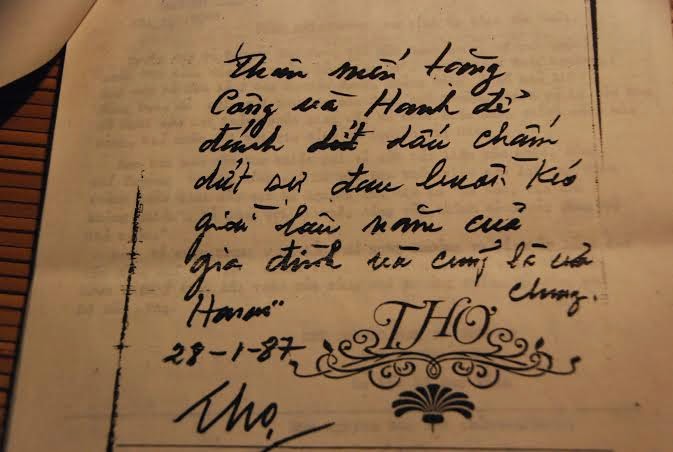 Thân mến tặng
Công và Hạnh để
đánh dứt dấu chấm
dứt sự đau buồn kéo
giai lâu năm của
gia đình và cũng là của
chung.
Hanoi
28-1-87
THƠ
Thọ